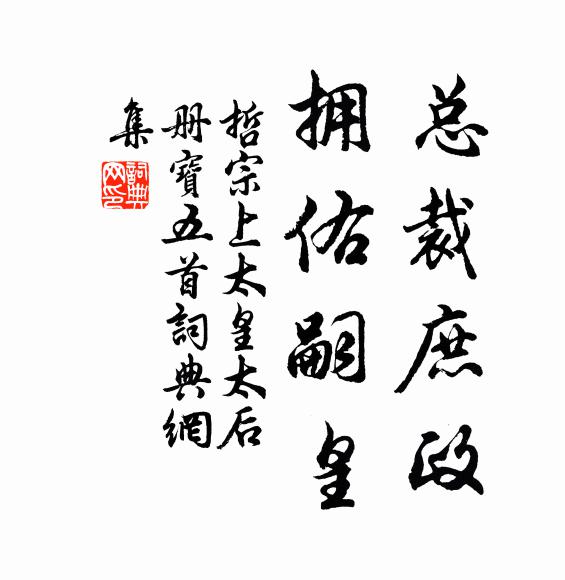 总裁庶政
拥佑嗣皇
哲宗上太皇太后
册寶五首詞典網
集
詞典网印